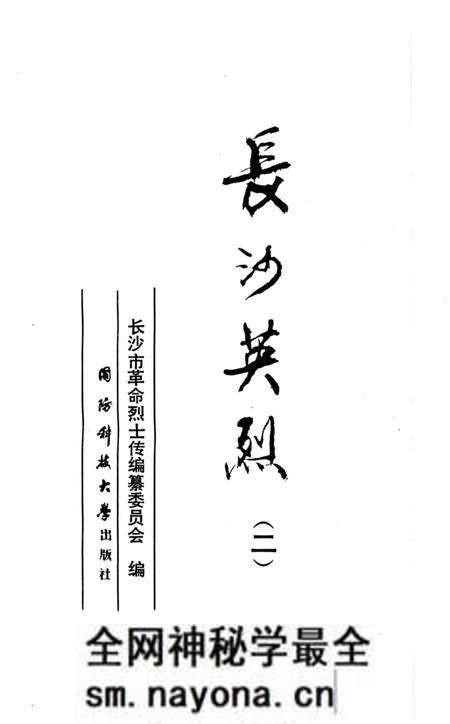 長沙英烈(二)
长沙市革命烈士传编纂委员会 编
国防科技大学出版社
全网神秘学最全
sm.nayona.cn